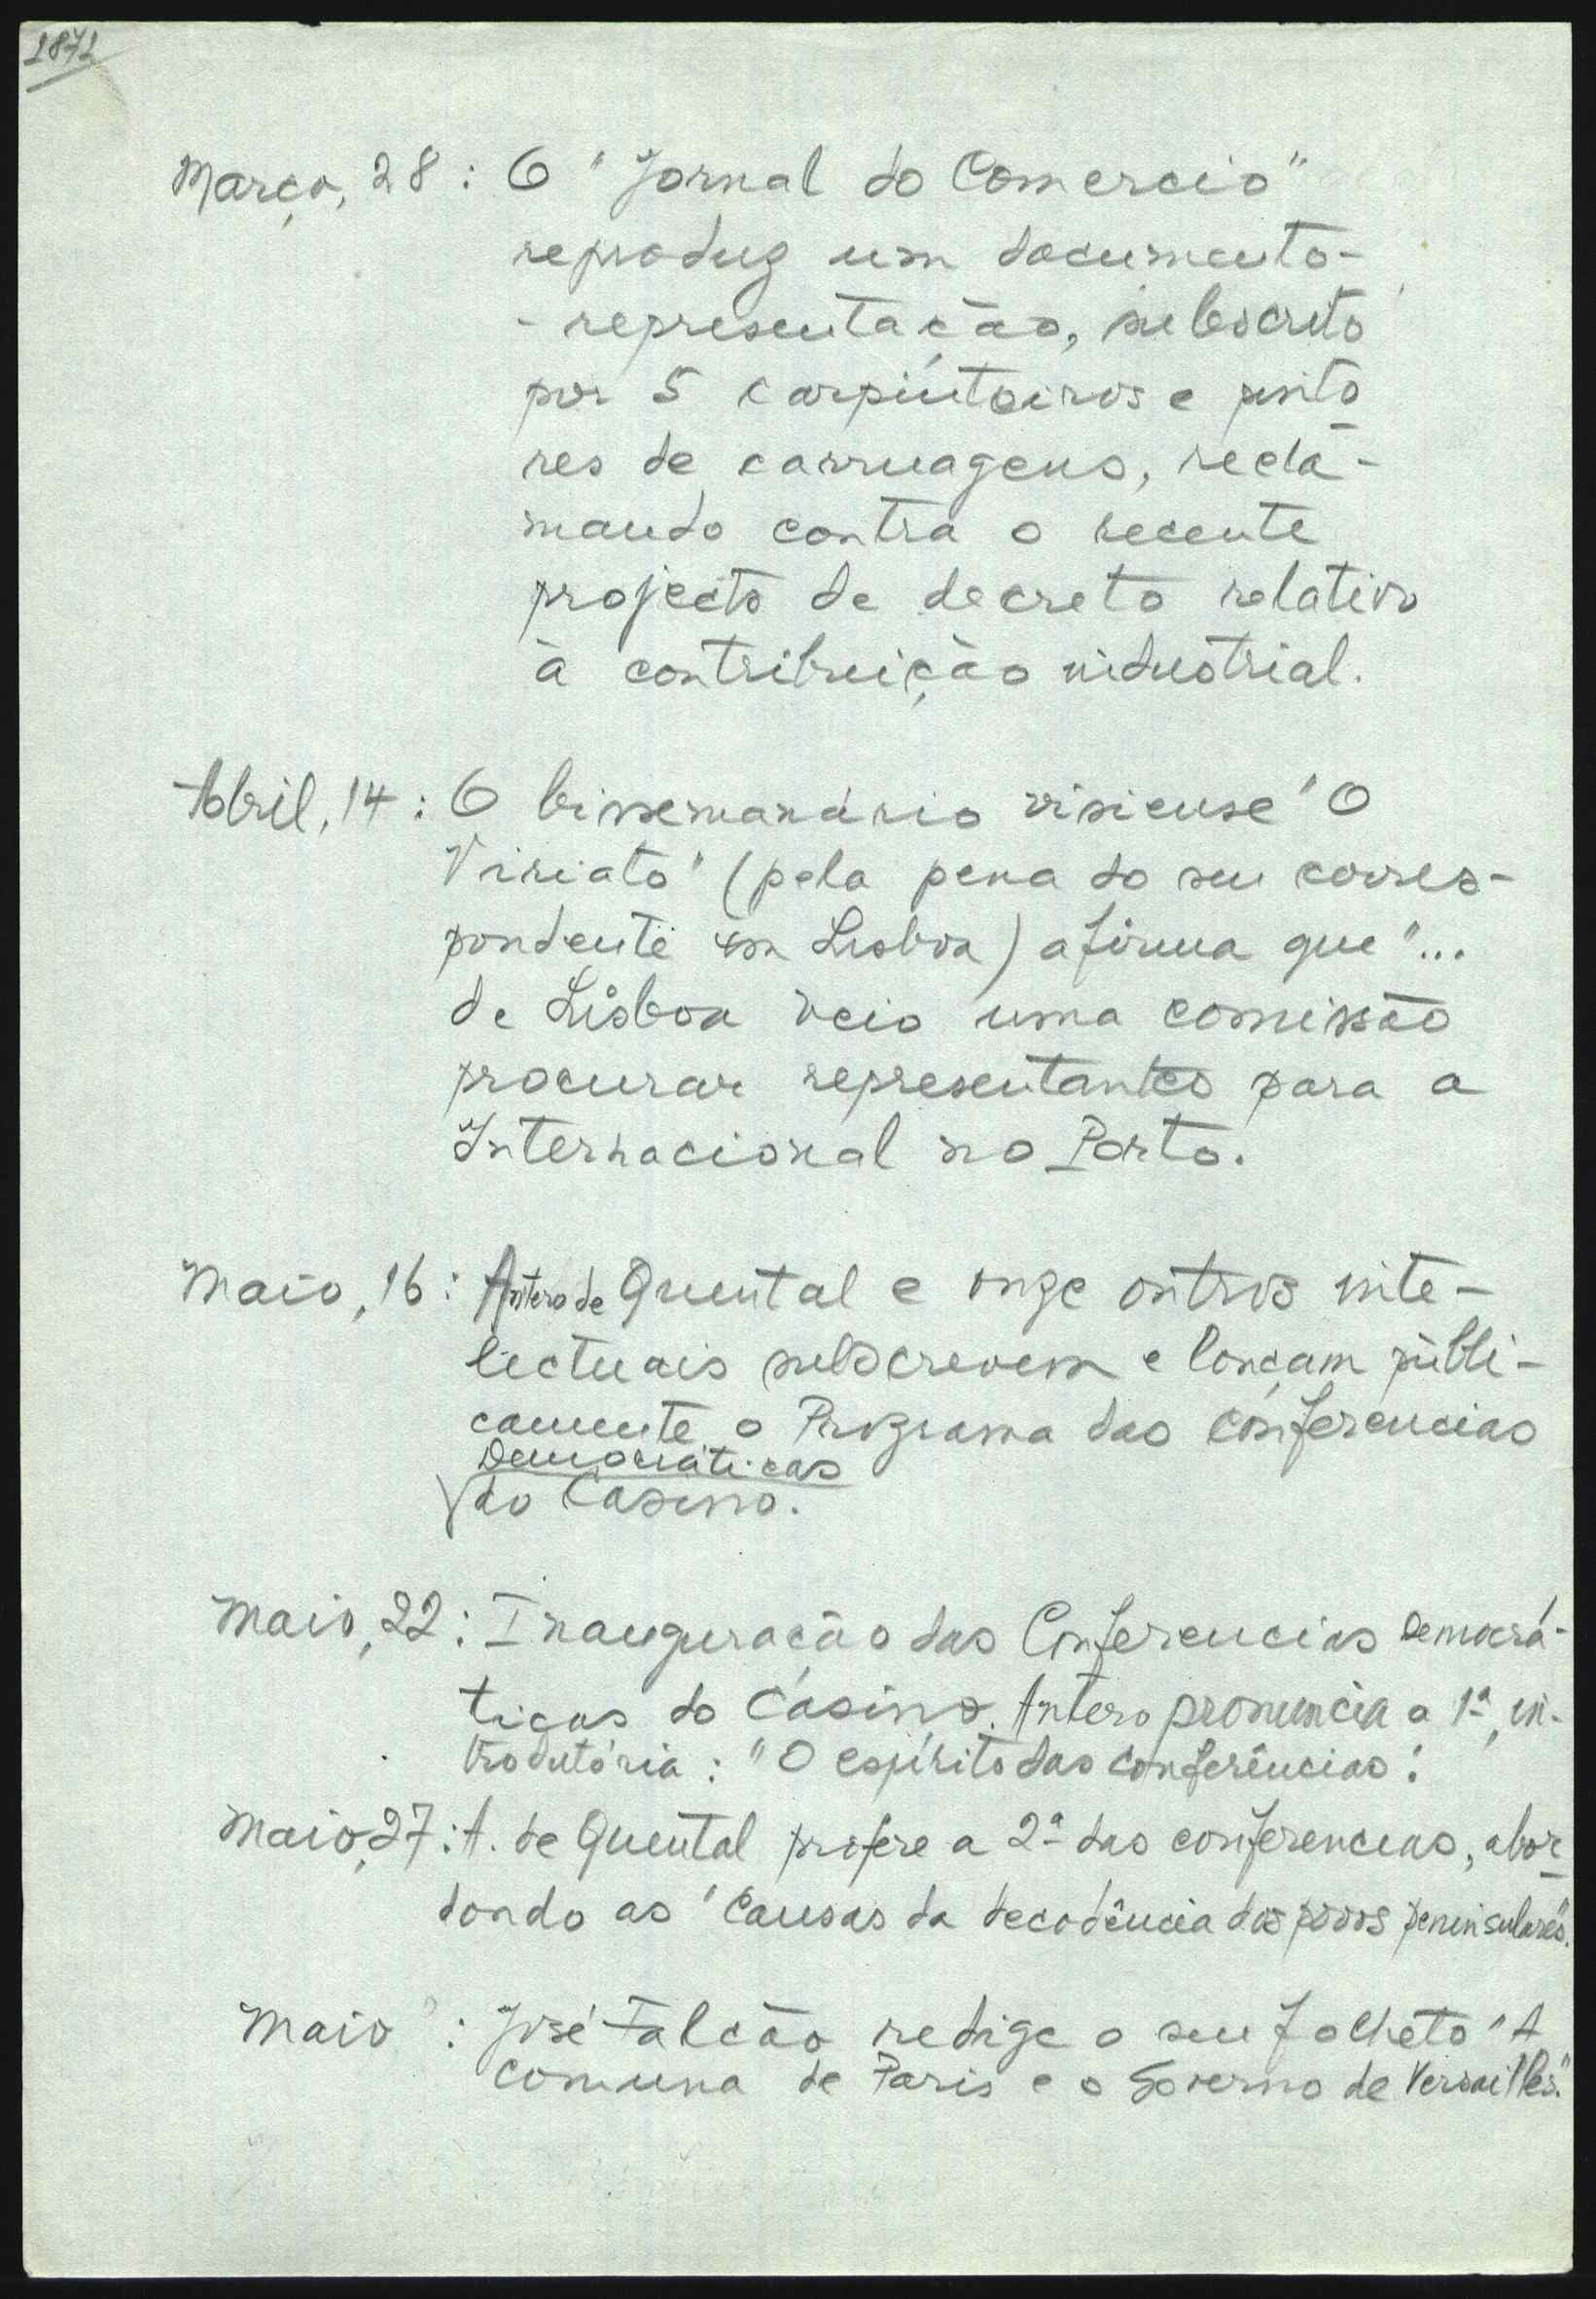 1871
Março, 28: O "Jornal do Comercio"
reproduz um documento-
- representação, subscrito
por 5 carpinteiros e pinto
res de carruagens, recla-
mando contra o recente
projecto de decreto relativo
à contribuição industrial.
Abril, 14: O bissemanário visiense "O
Viriato" (pela pena do seu corres-
pondente em Lisboa) afirma que "...
de Lisboa veio uma comissão
procurar representantes para a
Internacional no Porto.
Maio, 16: Antero de Quental e onze outros inte-
lectuais subscrevem e lançam públi-
camente o Programa das Conferencias
Democráticas
do Casino.
Maio, 22: Inauguração das Conferencias Democrá-
ticas do Casino. Antero pronuncia a 1ª, in-
trodutória: "O espírito das conferências".
Maio, 27: A. de Quental profere a 2ª das conferencias, abor-
dando as "Causas da decadência dos povos peninsulares".
Maio : José Falcão redige o seu folheto "A
Comuna de Paris e o Governo de Versailles".